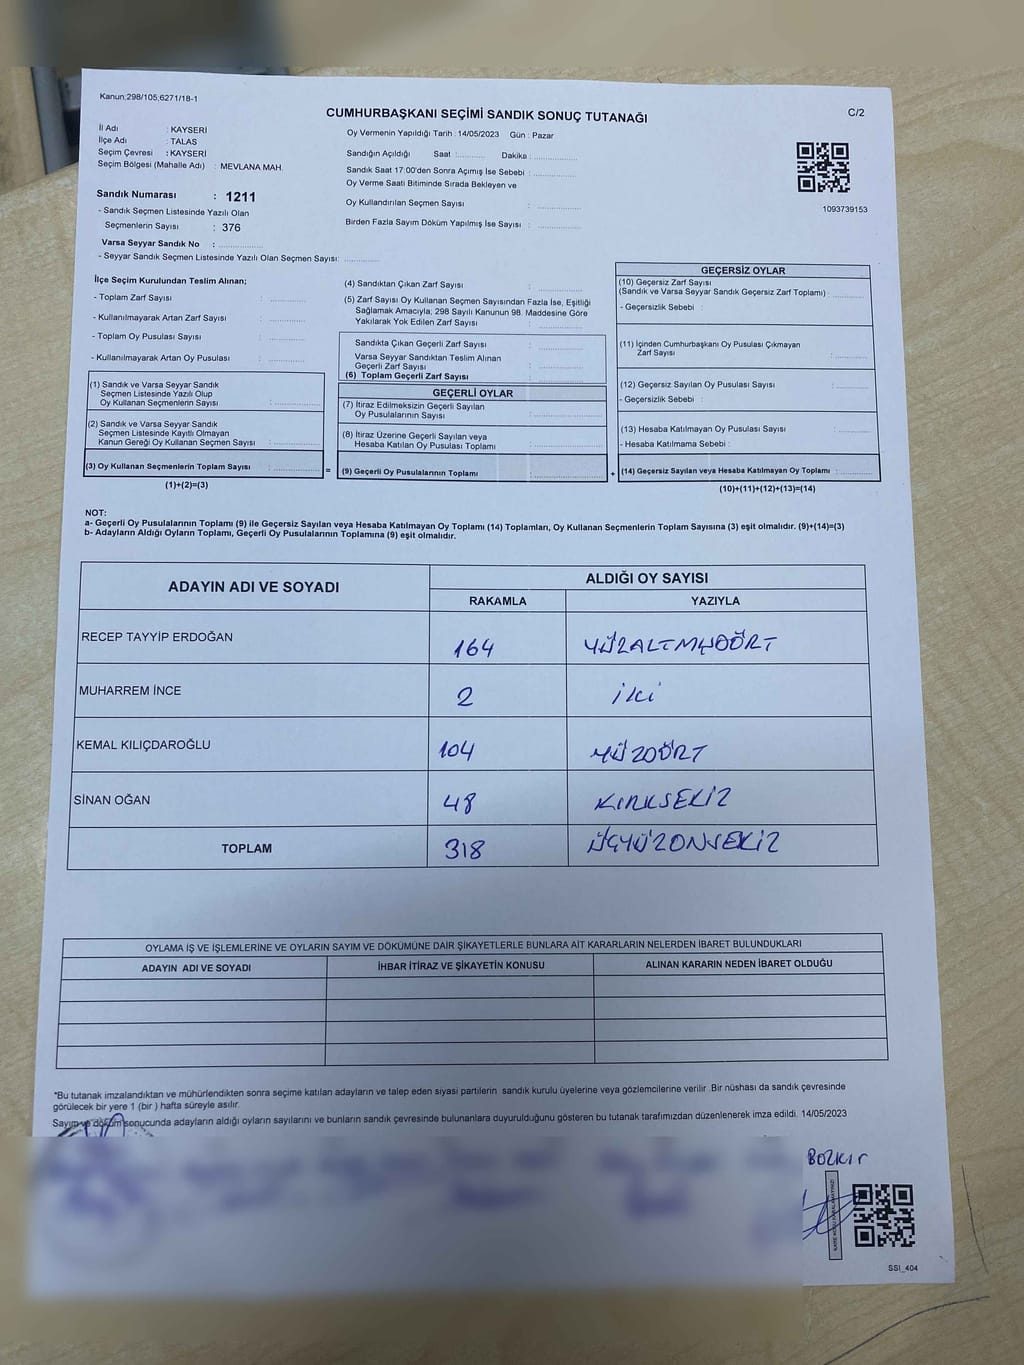 Kanun;298/105;6271/18-1
CUMHURBAŞKANI SEÇİMİ SANDIK SONUÇ TUTANAĞI
C/2
İl Adı : KAYSERİ
İlçe Adı : TALAS
Seçim Çevresi : KAYSERİ
Seçim Bölgesi (Mahalle Adı) : MEVLANA MAH.
Sandık Numarası : 1211
- Sandık Seçmen Listesinde Yazılı Olan
Seçmenlerin Sayısı : 376
Varsa Seyyar Sandık No :
- Seyyar Sandık Seçmen Listesinde Yazılı Olan Seçmen Sayısı:
Oy Vermenin Yapıldığı Tarih : 14/05/2023 Gün : Pazar
Sandığın Açıldığı Saat : Dakika :
Sandık Saat 17:00'den Sonra Açımış İse Sebebi :
Oy Verme Saati Bitiminde Sırada Bekleyen ve
Oy Kullandırılan Seçmen Sayısı :
Birden Fazla Sayım Döküm Yapılmış İse Sayısı :
1093739153
İlçe Seçim Kurulundan Teslim Alınan;
- Toplam Zarf Sayısı :
- Kullanılmayarak Artan Zarf Sayısı :
- Toplam Oy Pusulası Sayısı :
- Kullanılmayarak Artan Oy Pusulası :
(1) Sandık ve Varsa Seyyar Sandık
Seçmen Listesinde Yazılı Olup
Oy Kullanan Seçmenlerin Sayısı :
(2) Sandık ve Varsa Seyyar Sandık
Seçmen Listesinde Kayıtlı Olmayan
Kanun Gereği Oy Kullanan Seçmen Sayısı :
(3) Oy Kullanan Seçmenlerin Toplam Sayısı :
(1)+(2)=(3)
=
(4) Sandıktan Çıkan Zarf Sayısı :
(5) Zarf Sayısı Oy Kullanan Seçmen Sayısından Fazla İse, Eşitliği
Sağlamak Amacıyla, 298 Sayılı Kanunun 98. Maddesine Göre
Yakılarak Yok Edilen Zarf Sayısı :
Sandıkta Çıkan Geçerli Zarf Sayısı :
Varsa Seyyar Sandıktan Teslim Alınan
Geçerli Zarf Sayısı :
(6) Toplam Geçerli Zarf Sayısı :
GEÇERLİ OYLAR
(7) İtiraz Edilmeksizin Geçerli Sayılan
Oy Pusulalarının Sayısı :
(8) İtiraz Üzerine Geçerli Sayılan veya
Hesaba Katılan Oy Pusulası Toplamı :
(9) Geçerli Oy Pusulalarının Toplamı :
+
GEÇERSİZ OYLAR
(10) Geçersiz Zarf Sayısı
(Sandık ve Varsa Seyyar Sandık Geçersiz Zarf Toplamı) :
- Geçersizlik Sebebi :
(11) İçinden Cumhurbaşkanı Oy Pusulası Çıkmayan
Zarf Sayısı :
(12) Geçersiz Sayılan Oy Pusulası Sayısı :
- Geçersizlik Sebebi :
(13) Hesaba Katılmayan Oy Pusulası Sayısı :
- Hesaba Katılmama Sebebi :
(14) Geçersiz Sayılan veya Hesaba Katılmayan Oy Toplamı :
(10)+(11)+(12)+(13)=(14)
NOT:
a- Geçerli Oy Pusulalarının Toplamı (9) ile Geçersiz Sayılan veya Hesaba Katılmayan Oy Toplamı (14) Toplamları, Oy Kullanan Seçmenlerin Toplam Sayısına (3) eşit olmalıdır. (9)+(14)=(3)
b- Adayların Aldığı Oyların Toplamı, Geçerli Oy Pusulalarının Toplamına (9) eşit olmalıdır.
ADAYIN ADI VE SOYADI ALDIĞI OY SAYISI
RAKAMLA YAZIYLA
RECEP TAYYİP ERDOĞAN 164 YÜZALTMIŞDÖRT
MUHARREM İNCE 2 İki
KEMAL KILIÇDAROĞLU 104 YÜZDÖRT
SİNAN OĞAN 48 KIRKSEKİZ
TOPLAM 318 ÜÇYÜZONSEKİZ
OYLAMA İŞ VE İŞLEMLERİNE VE OYLARIN SAYIM VE DÖKÜMÜNE DAİR ŞİKAYETLERLE BUNLARA AİT KARARLARIN NELERDEN İBARET BULUNDUKLARI
ADAYIN ADI VE SOYADI İHBAR İTİRAZ VE ŞİKAYETİN KONUSU ALINAN KARARIN NEDEN İBARET OLDUĞU
*Bu tutanak imzalandıktan ve mühürlendikten sonra seçime katılan adayların ve talep eden siyasi partilerin sandık kurulu üyelerine veya gözlemcilerine verilir .Bir nüshası da sandık çevresinde
görülecek bir yere 1 (bir ) hafta süreyle asılır.
Sayım ve döküm sonucunda adayların aldığı oyların sayılarını ve bunların sandık çevresinde bulunanlara duyurulduğunu gösteren bu tutanak tarafımızdan düzenlenerek imza edildi. 14/05/2023
BOZKIR
SSI_404